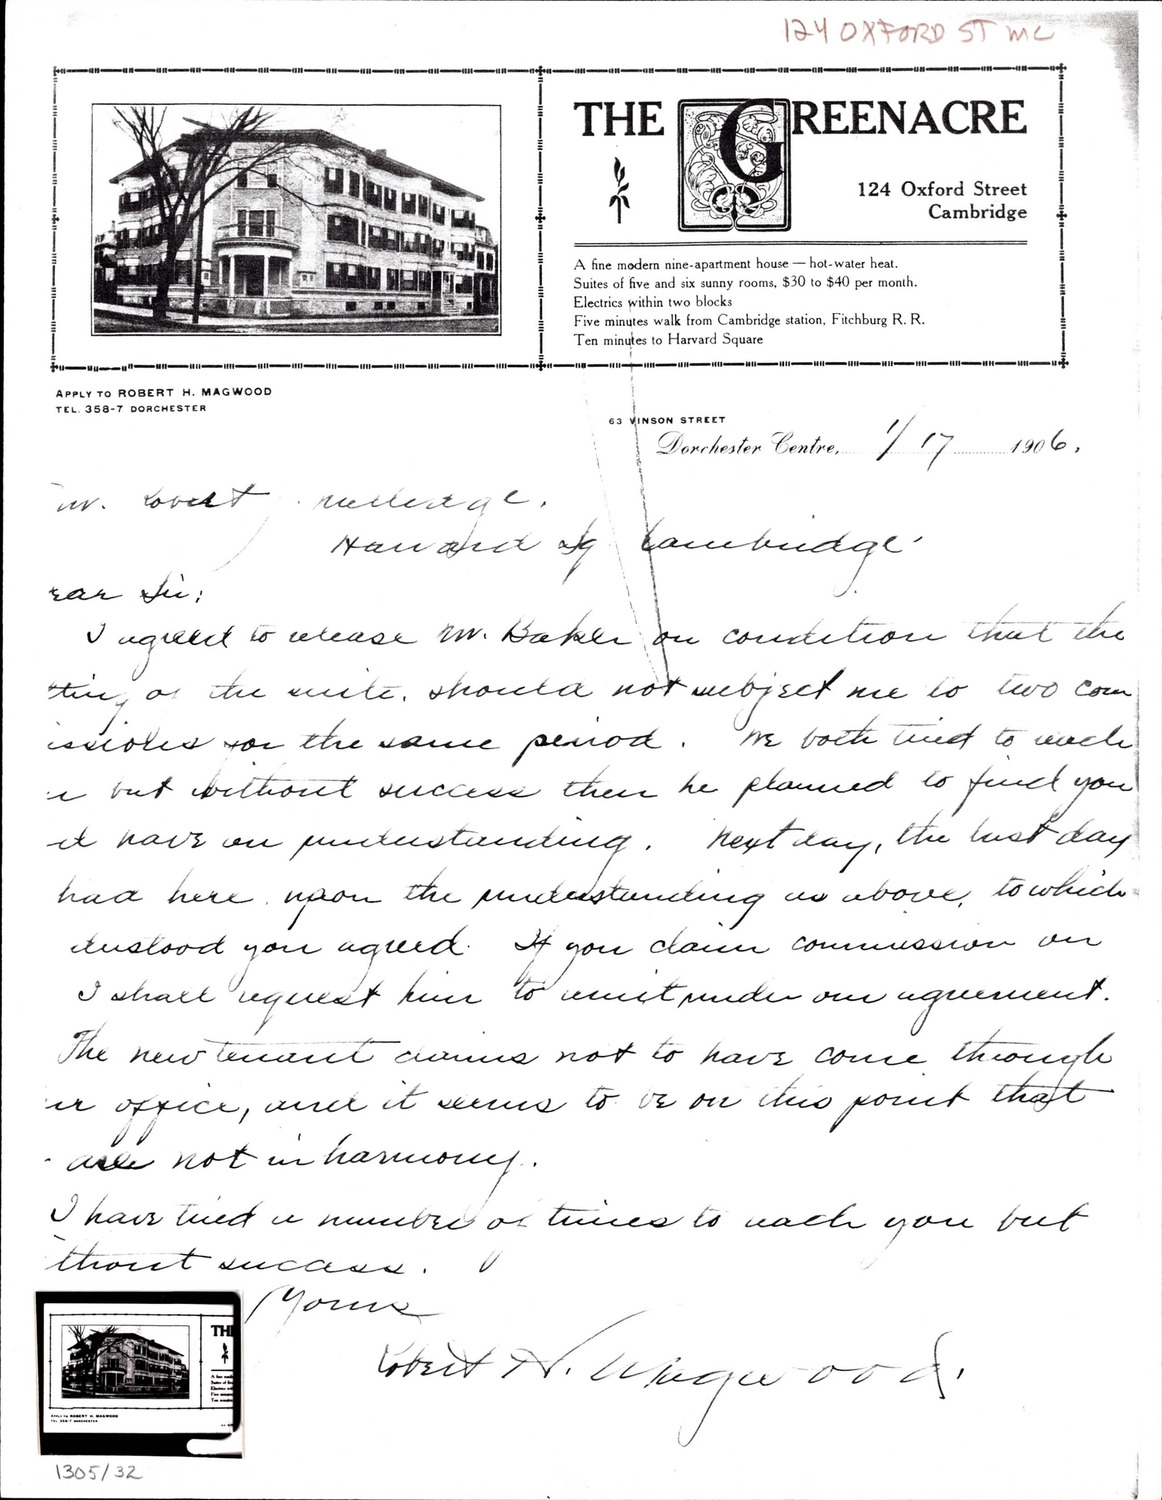 124 OXFORD ST MC
THE GREENACRE
124 Oxford Street
Cambridge
A fine modern nine-apartment house — hot-water heat.
Suites of five and six sunny rooms, $30 to $40 per month.
Electrics within two blocks
Five minutes walk from Cambridge station, Fitchburg R. R.
Ten minutes to Harvard Square
APPLY TO ROBERT H. MAGWOOD
TEL. 358-7 DORCHESTER
63 VINSON STREET
Dorchester Centre, 1/17 1906.
Harvard Sq Cambridge
ear Sir:
I agreed to release Mr. Baker on condition that the
tting of the suite, should not subject me to two com
issions for the same period. We both tried to reach
u but without success then he planned to find you
d have an understanding. Next day, the last day
had here, upon the understanding as above, to which
derstood you agreed. If you claim commission on
I shall request him to remit under our agreement.
The new tenant claims not to have come through
ur office, and it seems to be on this point that
are not in harmony.
I have tried a number of times to reach you but
thout success.
Yours
Robert H. Magwood.
THE
APPLY TO ROBERT H. MAGWOOD
TEL. 358-7 DORCHESTER
1305/32